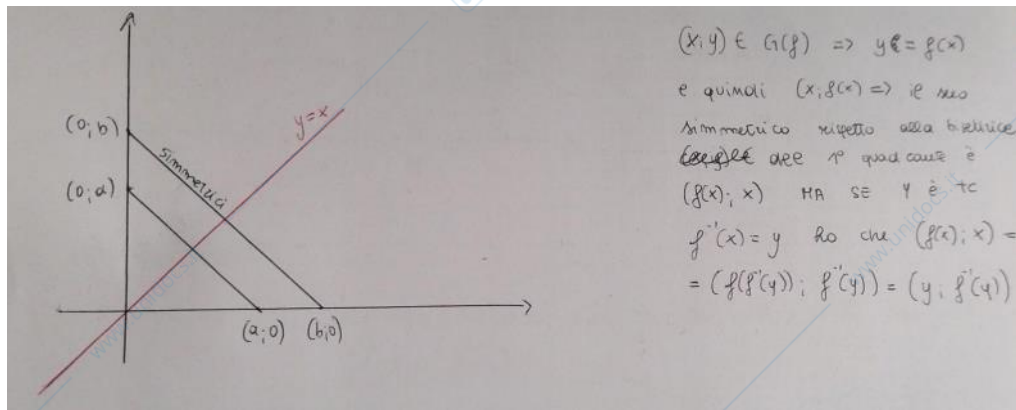 (0;b)
(0;a)
simmetrici
y=x
(a;0) (b;0)
(x;y) ∈ G(f) => y = f(x)
e quindi (x;f(x) => il suo
simmetrico rispetto alla bisettrice
del 1° quadrante è
(f(x); x) MA SE y è tc
f⁻¹(x) = y ho che (f(x); x) =
= (f(f⁻¹(y)); f⁻¹(y)) = (y; f⁻¹(y))
www.unidocs.it
www.unidocs.it